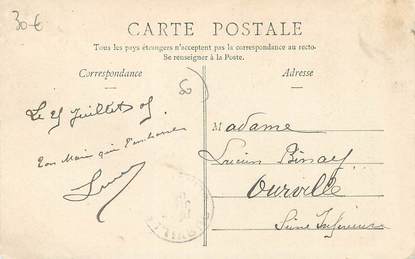 30 €
CARTE POSTALE
Tous les pays étrangers n'acceptent pas la correspondance au recto.
Se renseigner à la Poste.
Correspondance
Adresse
Le 25 Juillet 05
Ton Mari qui t'embrasse
Madame
Lucien Binay
Ourville
Seine Inférieure